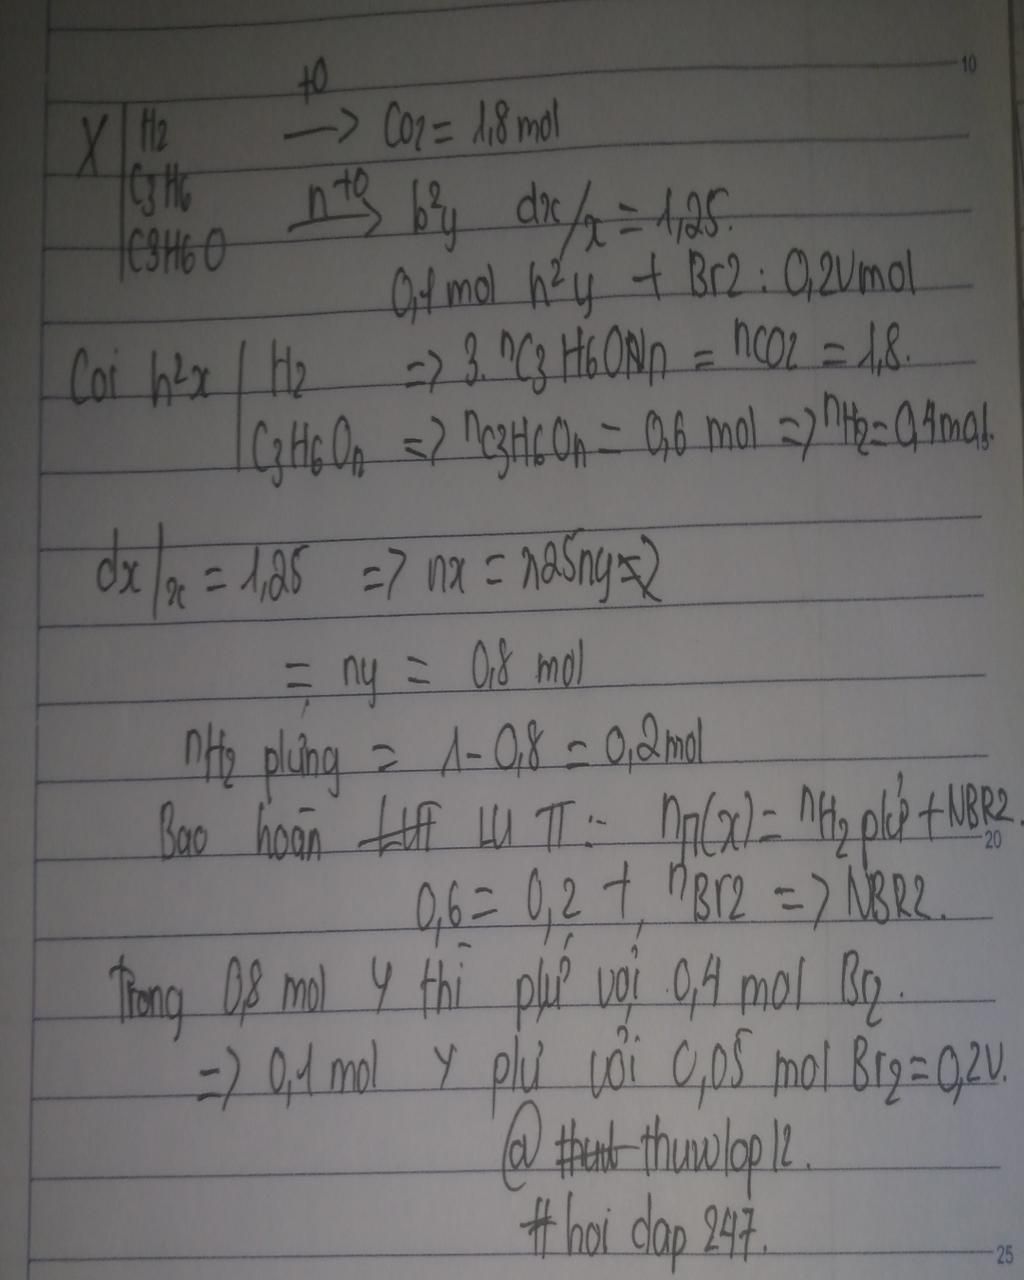 10
+O
X | H2 → CO2 = 1,8 mol
C3H6
C3H6O n +O → h²y dx/x = 1,25.
0,1 mol h²y + Br2 : 0,2V mol
Coi h²x | H2 => 3. nC3H6ONn = nCO2 = 1,8.
C3H6On => nC3H6On = 0,6 mol => nH2 = 0,4 mol.
dx/x = 1,25 => nx = 1,25ny =>
= ny = 0,8 mol
nH2 pứng = 1 - 0,8 = 0,2 mol
Bao hoàn π :- nπ(x) = nH2 pứ + NBR2.
20
0,6 = 0,2 + nBr2 => NBR2.
Trong 0,8 mol Y thì pứ với 0,4 mol Br2.
=> 0,1 mol Y pứ với 0,05 mol Br2 = 0,2V.
@ thuwlop12.
# hoi dap 247.
25